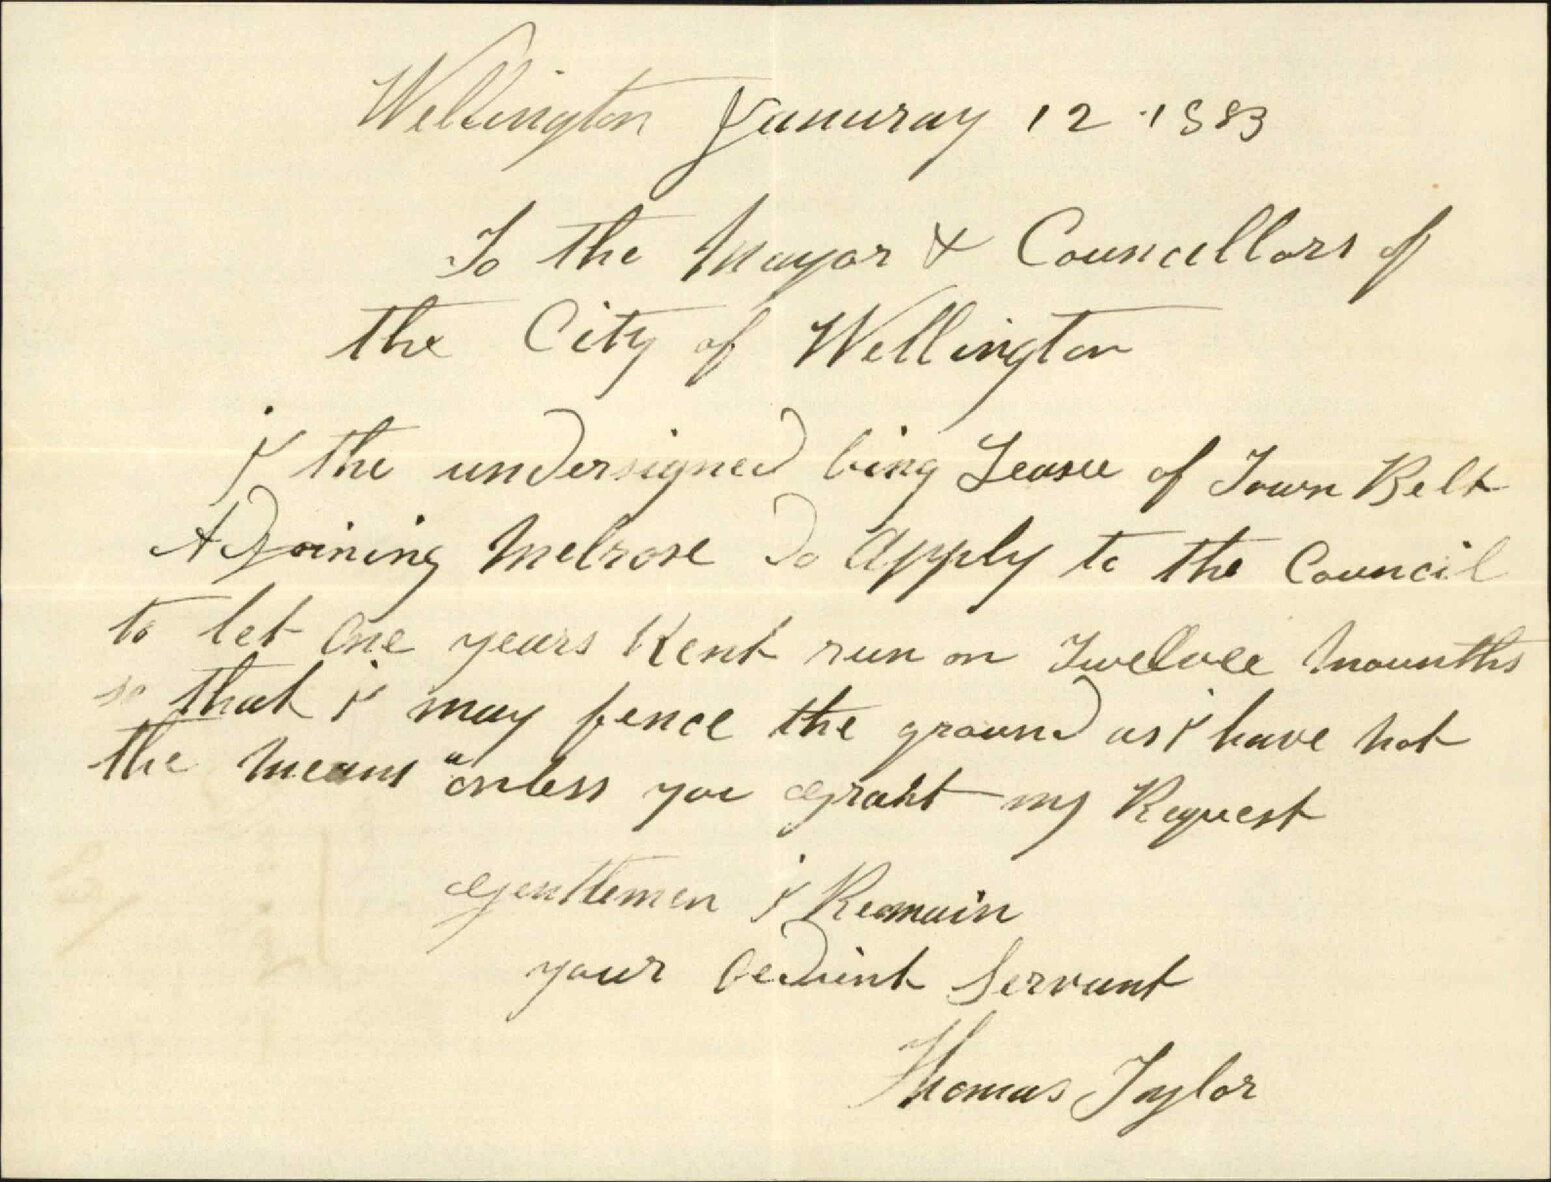 Wellington Januray 12 · 1883
To the Mayor & Councellors of
the City of Wellington
i the undersigned bing Leasee of Town Belt
Adjoining Melrose do apply to the Council
to let one years Rent run on Twelvee Mounths
so that i may fence the ground as i have not
the means "onless you grant my Request
Gentlemen i Remain
your oedient Servant
Thomas Taylor